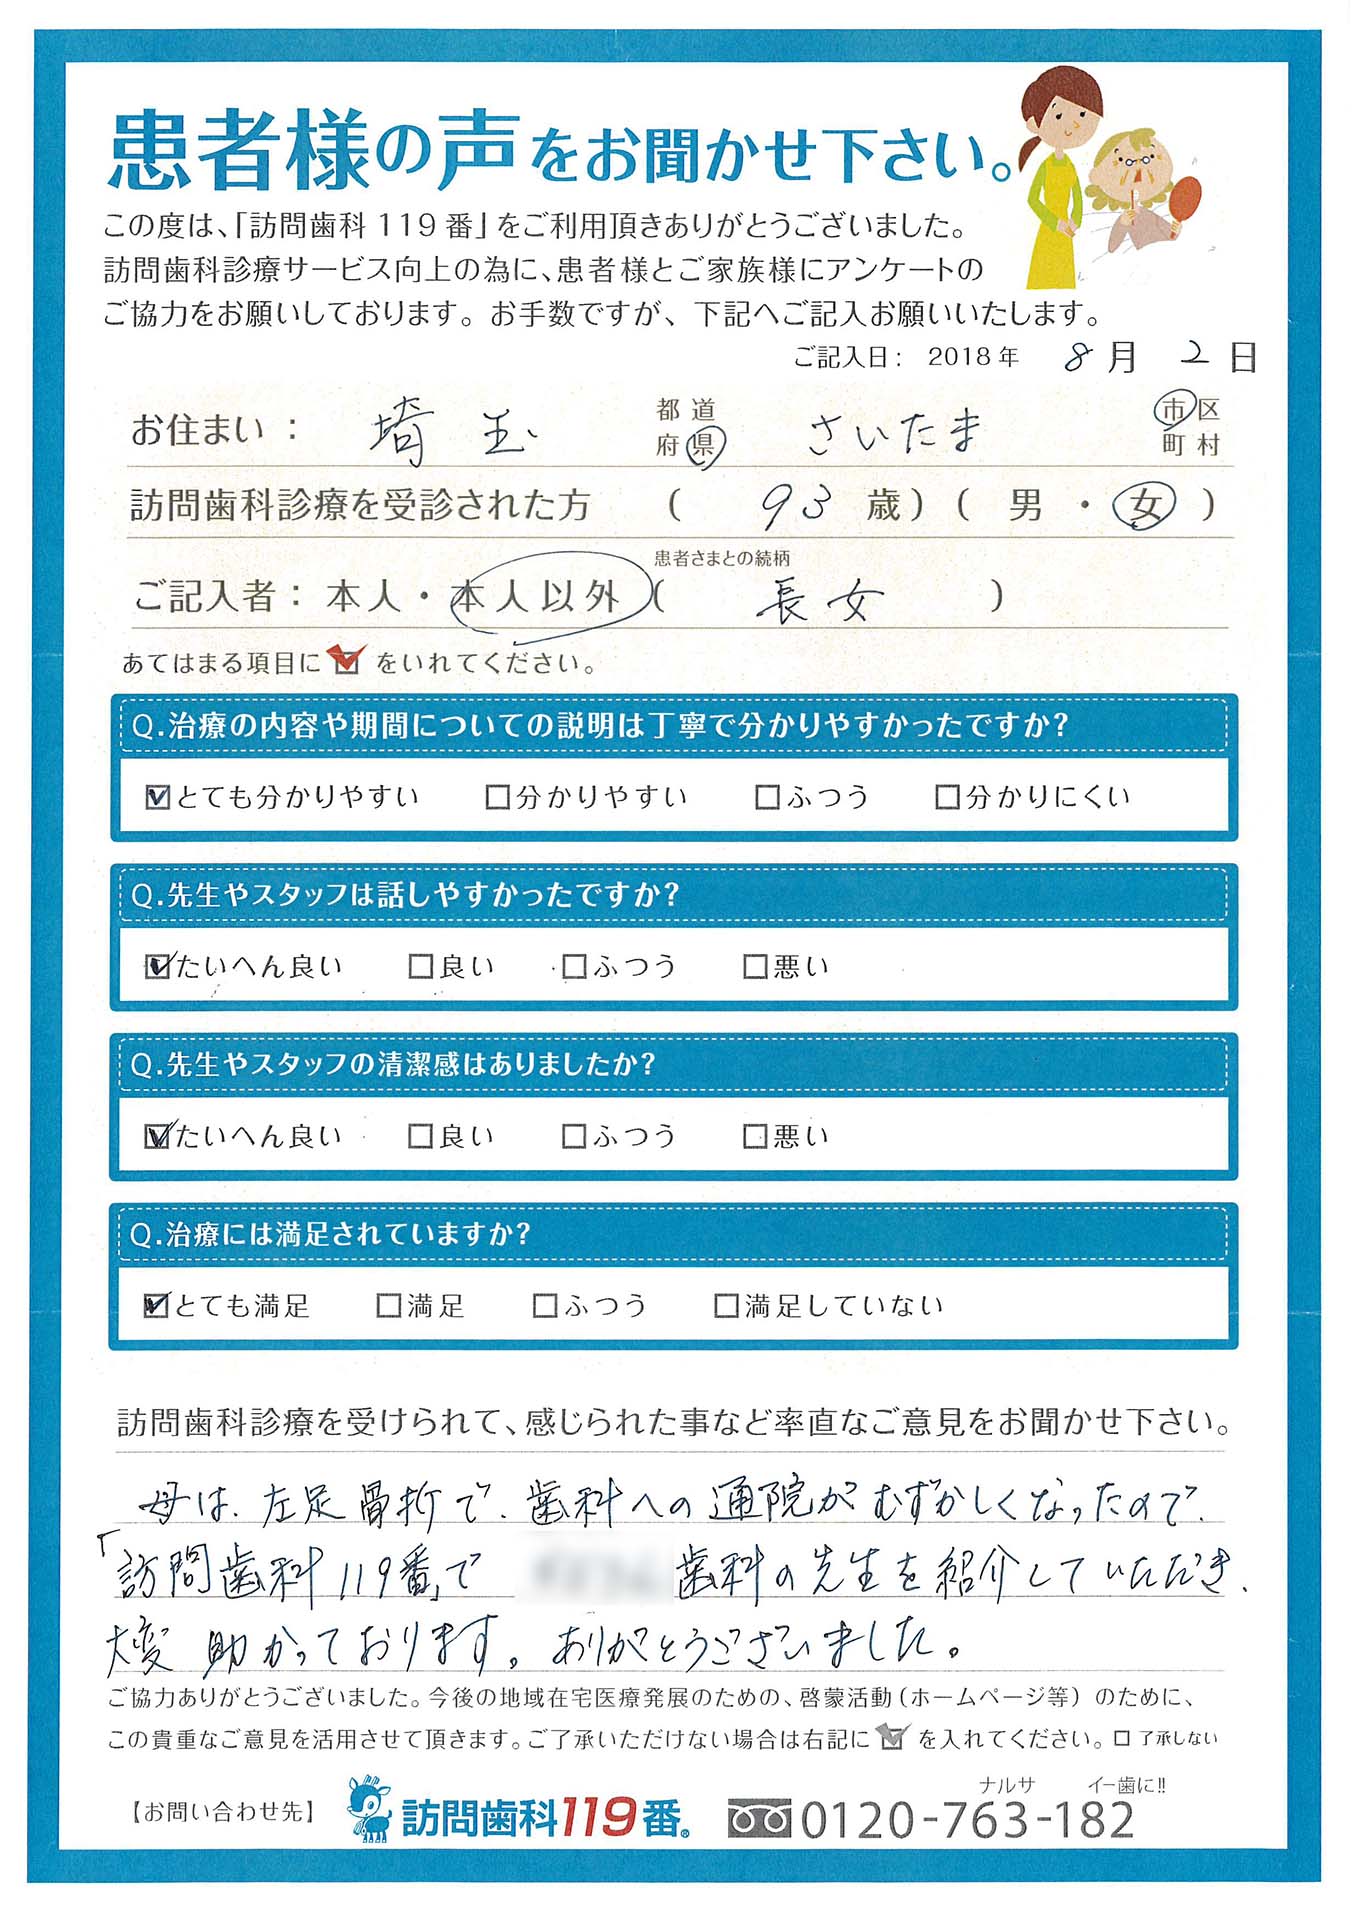 患者様の声をお聞かせ下さい。
この度は、「訪問歯科119番」をご利用頂きありがとうございました。
訪問歯科診療サービス向上の為に、患者様とご家族様にアンケートの
ご協力をお願いしております。お手数ですが、下記へご記入お願いいたします。
ご記入日: 2018年 8月 2日
お住まい: 埼玉 都道府県 さいたま 市区町村
訪問歯科診療を受診された方 ( 93 歳) ( 男 ・ 女 )
患者さまとの続柄
ご記入者: 本人・本人以外 ( 長女 )
あてはまる項目に☑をいれてください。
Q.治療の内容や期間についての説明は丁寧で分かりやすかったですか?
☑とても分かりやすい □分かりやすい □ふつう □分かりにくい
Q.先生やスタッフは話しやすかったですか?
☑たいへん良い □良い □ふつう □悪い
Q.先生やスタッフの清潔感はありましたか?
☑たいへん良い □良い □ふつう □悪い
Q.治療には満足されていますか?
☑とても満足 □満足 □ふつう □満足していない
訪問歯科診療を受けられて、感じられた事など率直なご意見をお聞かせ下さい。
母は、左足骨折で、歯科への通院がむずかしくなったので、
「訪問歯科119番」で 歯科の先生を紹介していただき、
大変助かっております。ありがとうございました。
ご協力ありがとうございました。今後の地域在宅医療発展のための、啓蒙活動(ホームページ等)のために、
この貴重なご意見を活用させて頂きます。ご了承いただけない場合は右記に☑を入れてください。□了承しない
ナルサ イー歯に!!
【お問い合わせ先】 訪問歯科119番® 0120-763-182